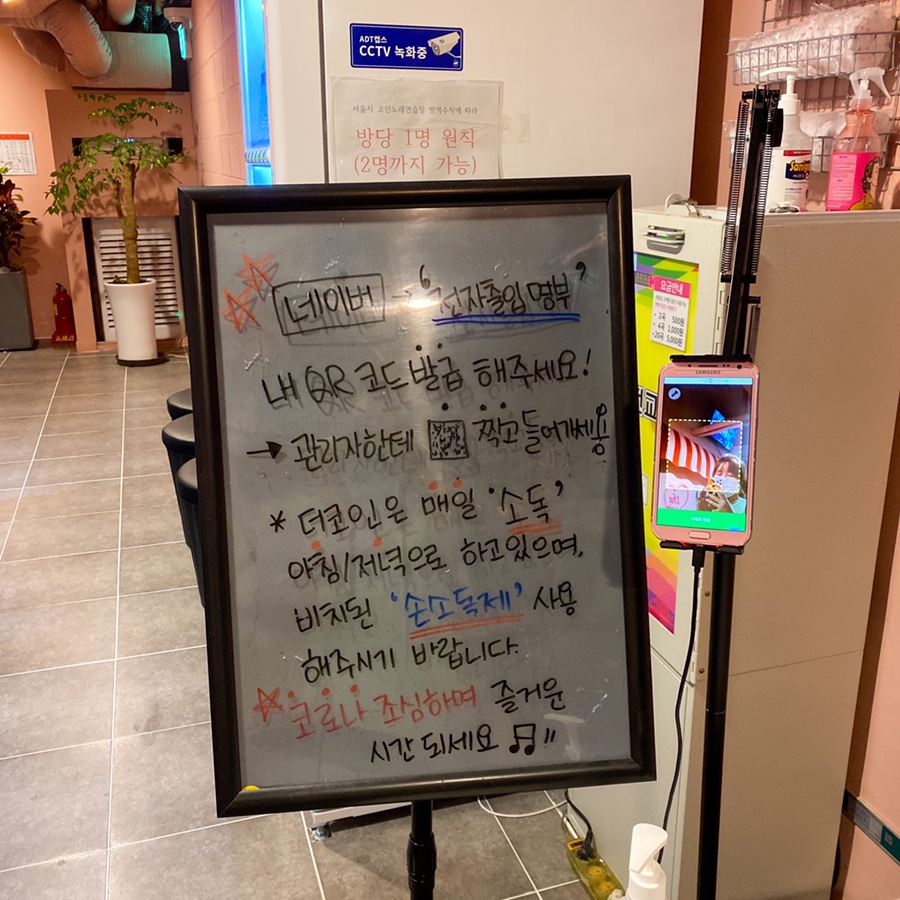 ADT캡스
CCTV 녹화중
서울시 코인노래연습장 방역수칙에 따라
방당 1명 원칙
(2명까지 가능)
네이버 → '전자출입명부'
내 QR 코드 발급 해주세요!
→ 관리자한테 찍고 들어가세용
* 더코인은 매일 '소독'
아침/저녁으로 하고있으며,
비치된 '손소독제' 사용
해주시기 바랍니다.
코로나 조심하며 즐거운
시간 되세요
요금안내
2곡 500원
4곡 1,000원
20곡 5,000원
SAMSUNG